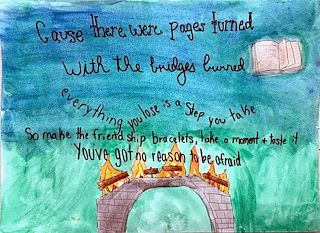 Cause there were pages turned
With the bridges burned
everything you lose is a step you take
So make the friendship bracelets, take a moment + taste it
You've got no reason to be afraid